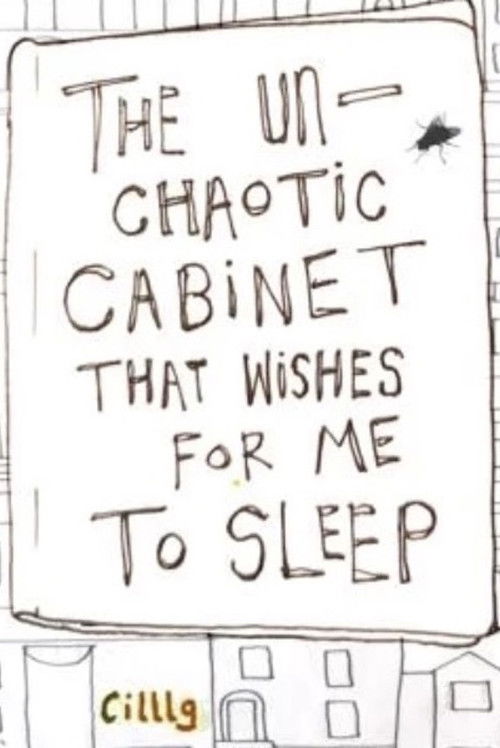 THE UN-
CHAOTiC
CABiNET
THAT WiSHES
FOR ME
TO SLEEP
Cilllg